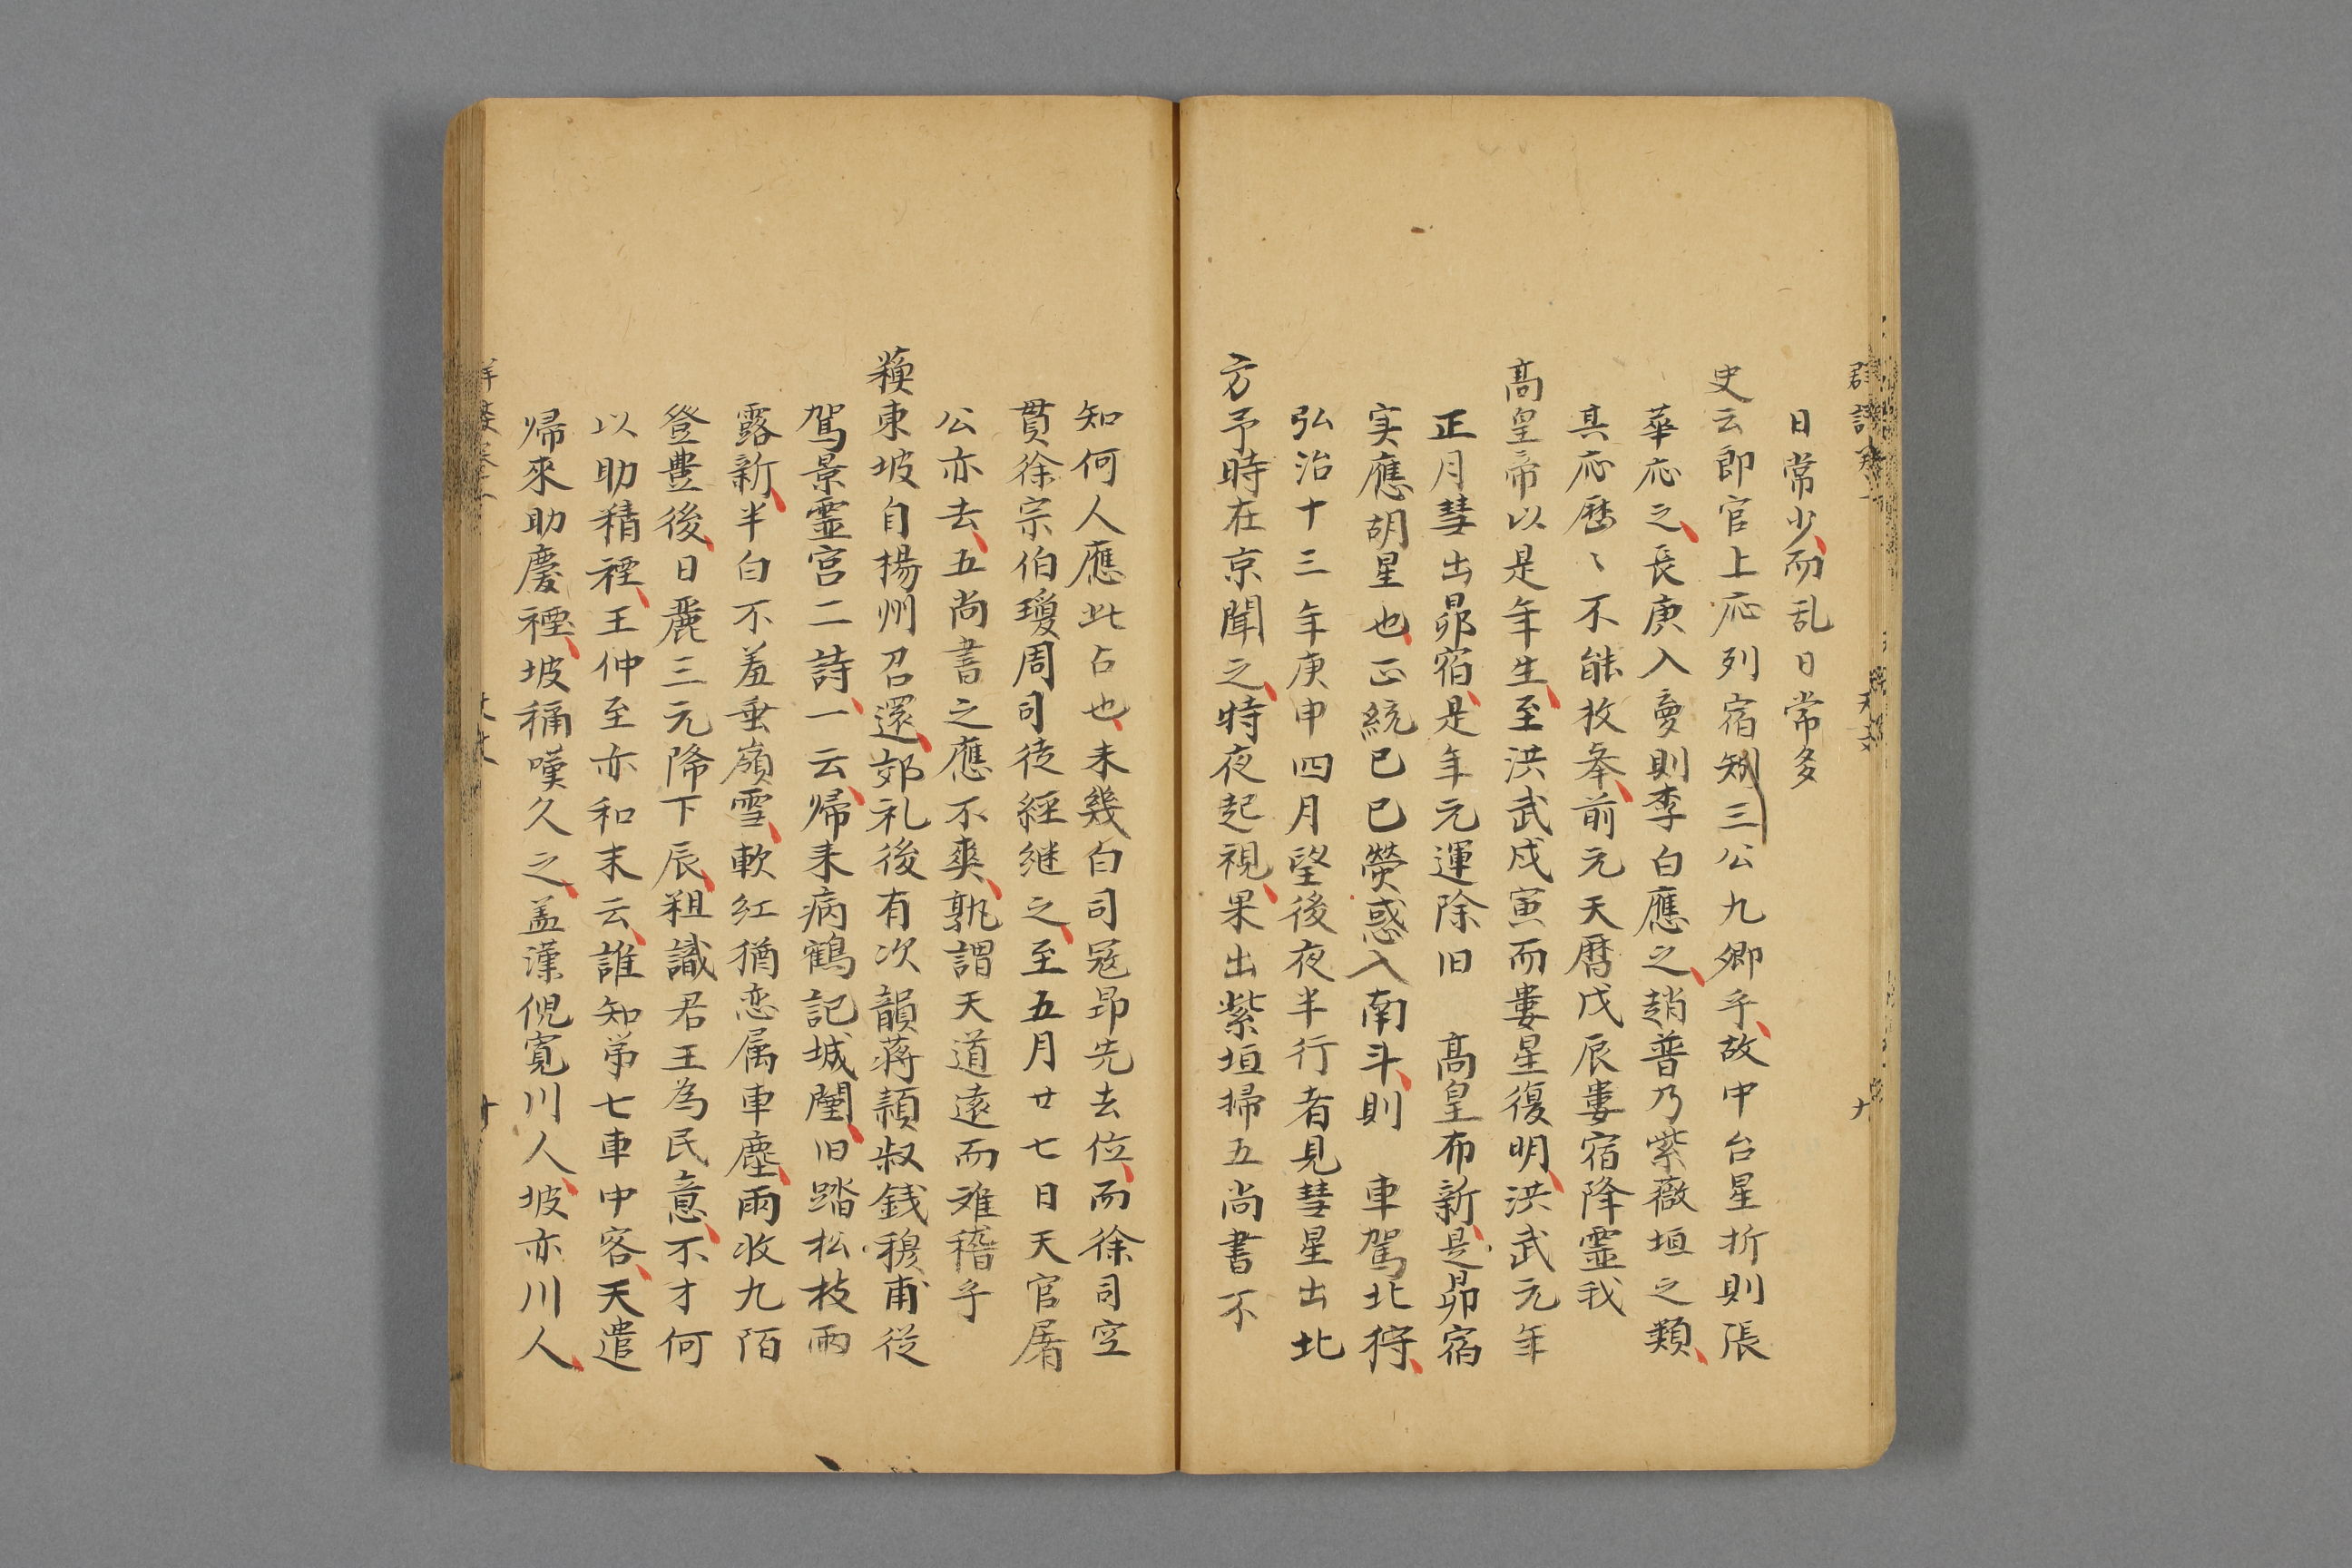 日常少而乱日常多
史云郎官上応列宿矧三公九卿乎故中台星折則張
華応之長庚入夢則李白應之趙普乃紫薇垣之類
其応歴〻不能枚举前元天暦戊辰婁宿降霊我
高皇帝以是年生至洪武戊寅而婁星復明洪武元年
正月彗出昴宿是年元運除旧　高皇布新是昴宿
実應胡星也正統已巳熒惑入南斗則　車駕北狩
弘治十三年庚申四月望後夜半行者見彗星出北
方予時在京聞之特夜起視果出紫垣掃五尚書不
知何人應此占也未幾白司冦昂先去位而徐司空
貫徐宗伯瓊周司徒經継之至五月廿七日天官屠
公亦去五尚書之應不爽孰謂天道遠而难稽乎
東坡自揚州召還郊礼後有次韻蒋頴叔錢穆甫従
駕景霊宮二詩一云帰来病鶴記城闉旧踏松枝雨
露新半白不羞垂領雪軟紅猶恋属車塵雨收九陌
登豊後日麗三元降下辰粗識君王為民意不才何
以助精禋王仲至亦和末云誰知第七車中客天遣
帰來助慶禋坡稱嘆久之盖漢倪寬川人坡亦川人